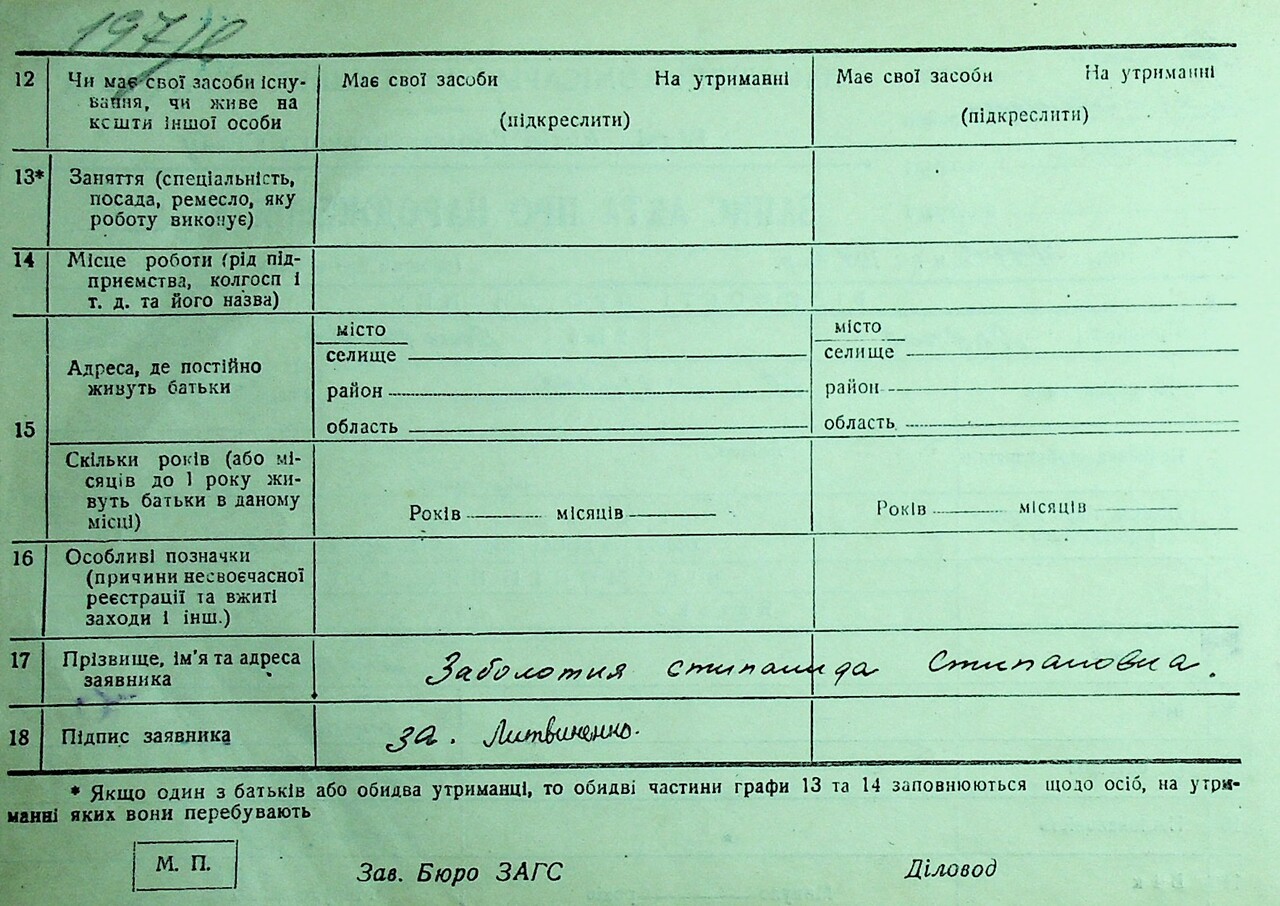 12 Чи має свої засоби існу- Має свої засоби На утриманні Має свої засоби На утриманні
вання, чи живе на
кошти іншої особи (підкреслити) (підкреслити)
13* Заняття (спеціальність,
посада, ремесло, яку
роботу виконує)
14 Місце роботи (рід під-
приємства, колгосп і
т. д. та його назва)
місто місто
селище селище
Адреса, де постійно
живуть батьки район район
15 область область
Скільки років (або мі-
сяців до 1 року жи-
вуть батьки в даному
місці) Років місяців Років місяців
16 Особливі позначки
(причини несвоєчасної
реєстрації та вжиті
заходи і інш.)
17 Прізвище, ім'я та адреса Заболотня стипанида Стипановна.
заявника
18 Підпис заявника за. Литвиненко.
* Якщо один з батьків або обидва утриманці, то обидві частини графи 13 та 14 заповнюються щодо осіб, на утри-
манні яких вони перебувають
М. П. Зав. Бюро ЗАГС Діловод